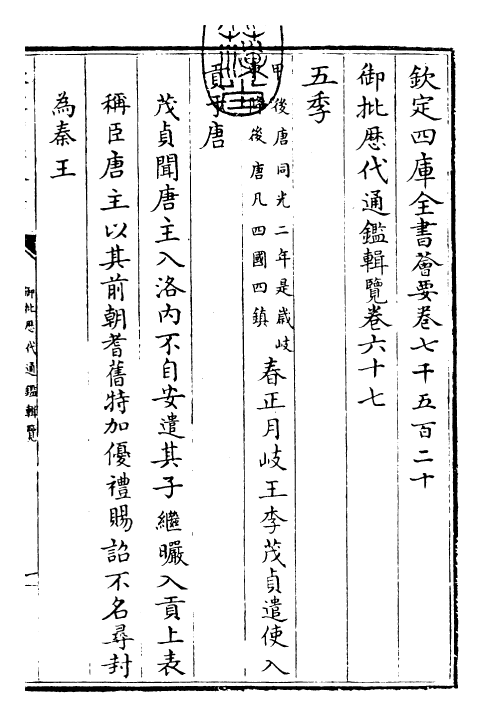 欽定四庫全書薈要卷七千五百二十
御批歷代通鑑輯覽卷六十七
五季
甲後唐同光二年是歲岐
降後唐凡四國四鎮
春正月岐王李茂貞遣使入
貢于唐
茂貞聞唐主入洛內不自安遣其子繼曮入貢上表
稱臣唐主以其前朝耆舊特加優禮賜詔不名尋封
為秦王
御批歷代通鑑輯覽